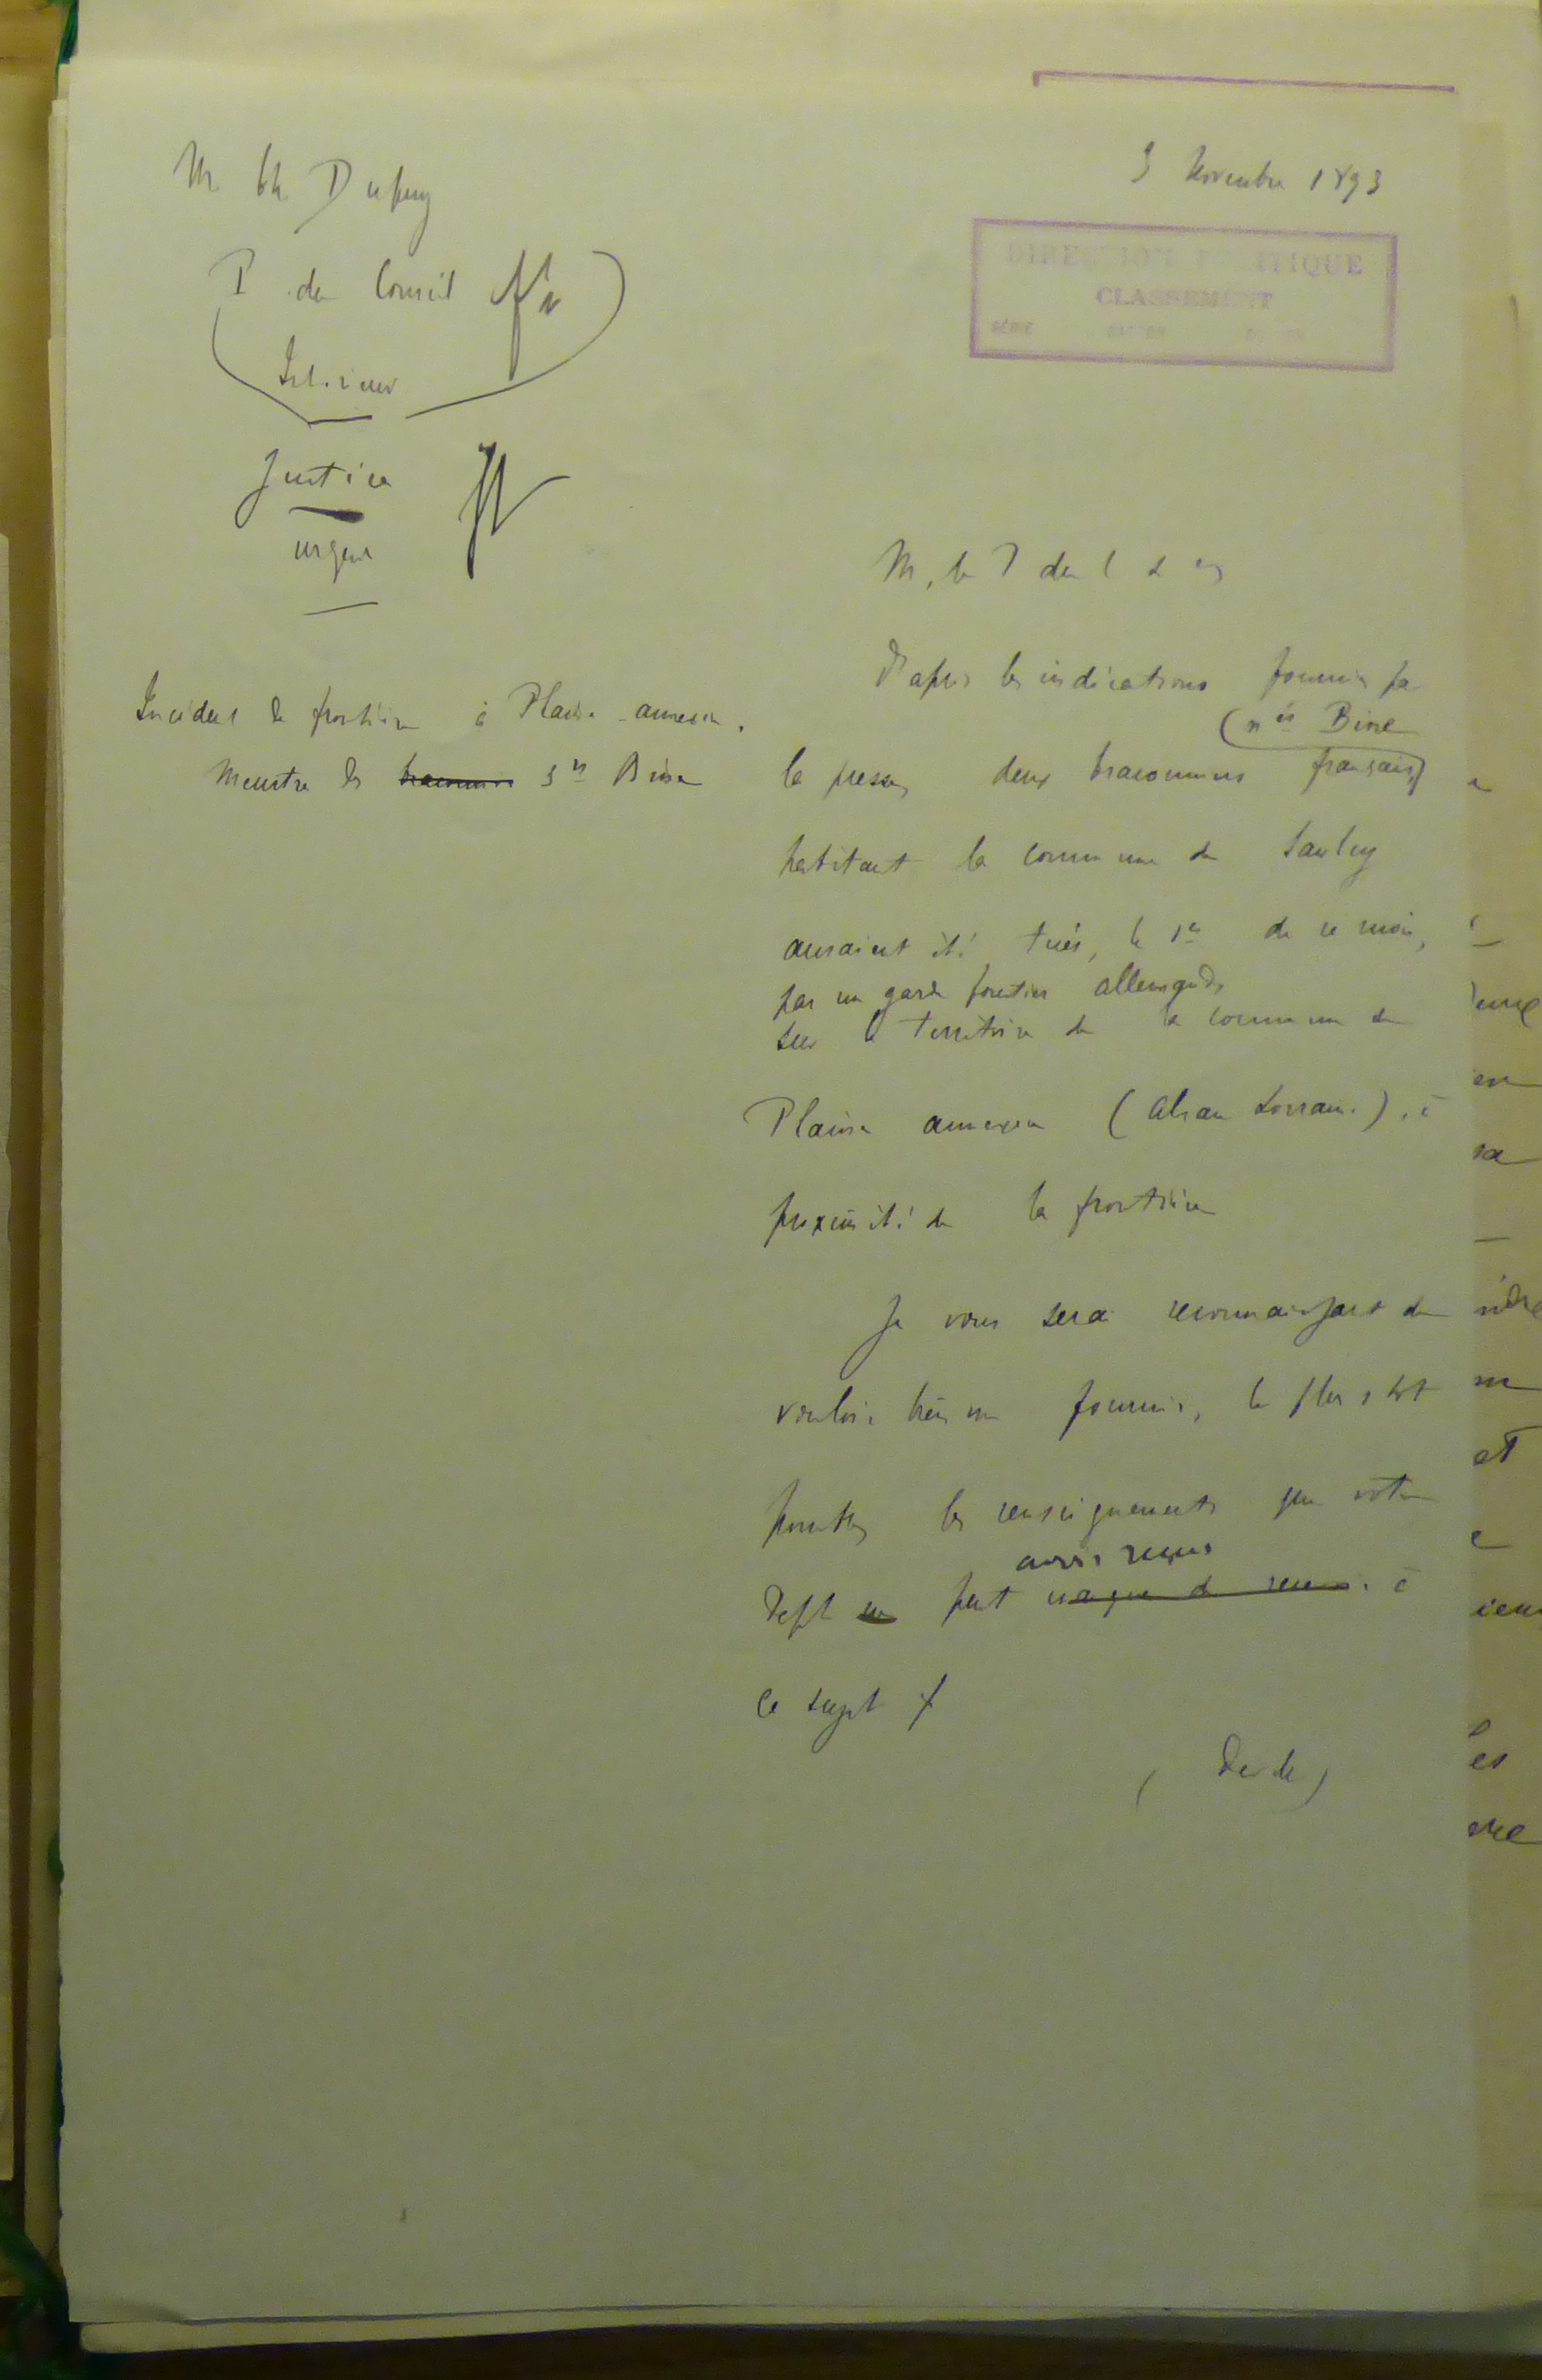 3 Novembre 1893
DIRECTION POLITIQUE
CLASSEMENT
SÉRIE
M Ch Dupuy
P du Conseil
Intérieur
Justice
urgent
Incident de frontière à Plaine-annexée.
Meurtre des braconniers Srs Bine
M. le P du C
D'après les indications fournies par
(nés Bine
la presse, deux braconniers français)
habitant la commune de Saulcy
auraient été tués, le 1er de ce mois,
par un garde forestier allemand,
sur le territoire de la commune de
Plaine annexée (Alsace Lorraine), à
proximité de la frontière
Je vous serai reconnaissant de
vouloir bien me fournir, le plus tôt
possible, les renseignements que votre
avoir reçus
Dept peut à
ce sujet